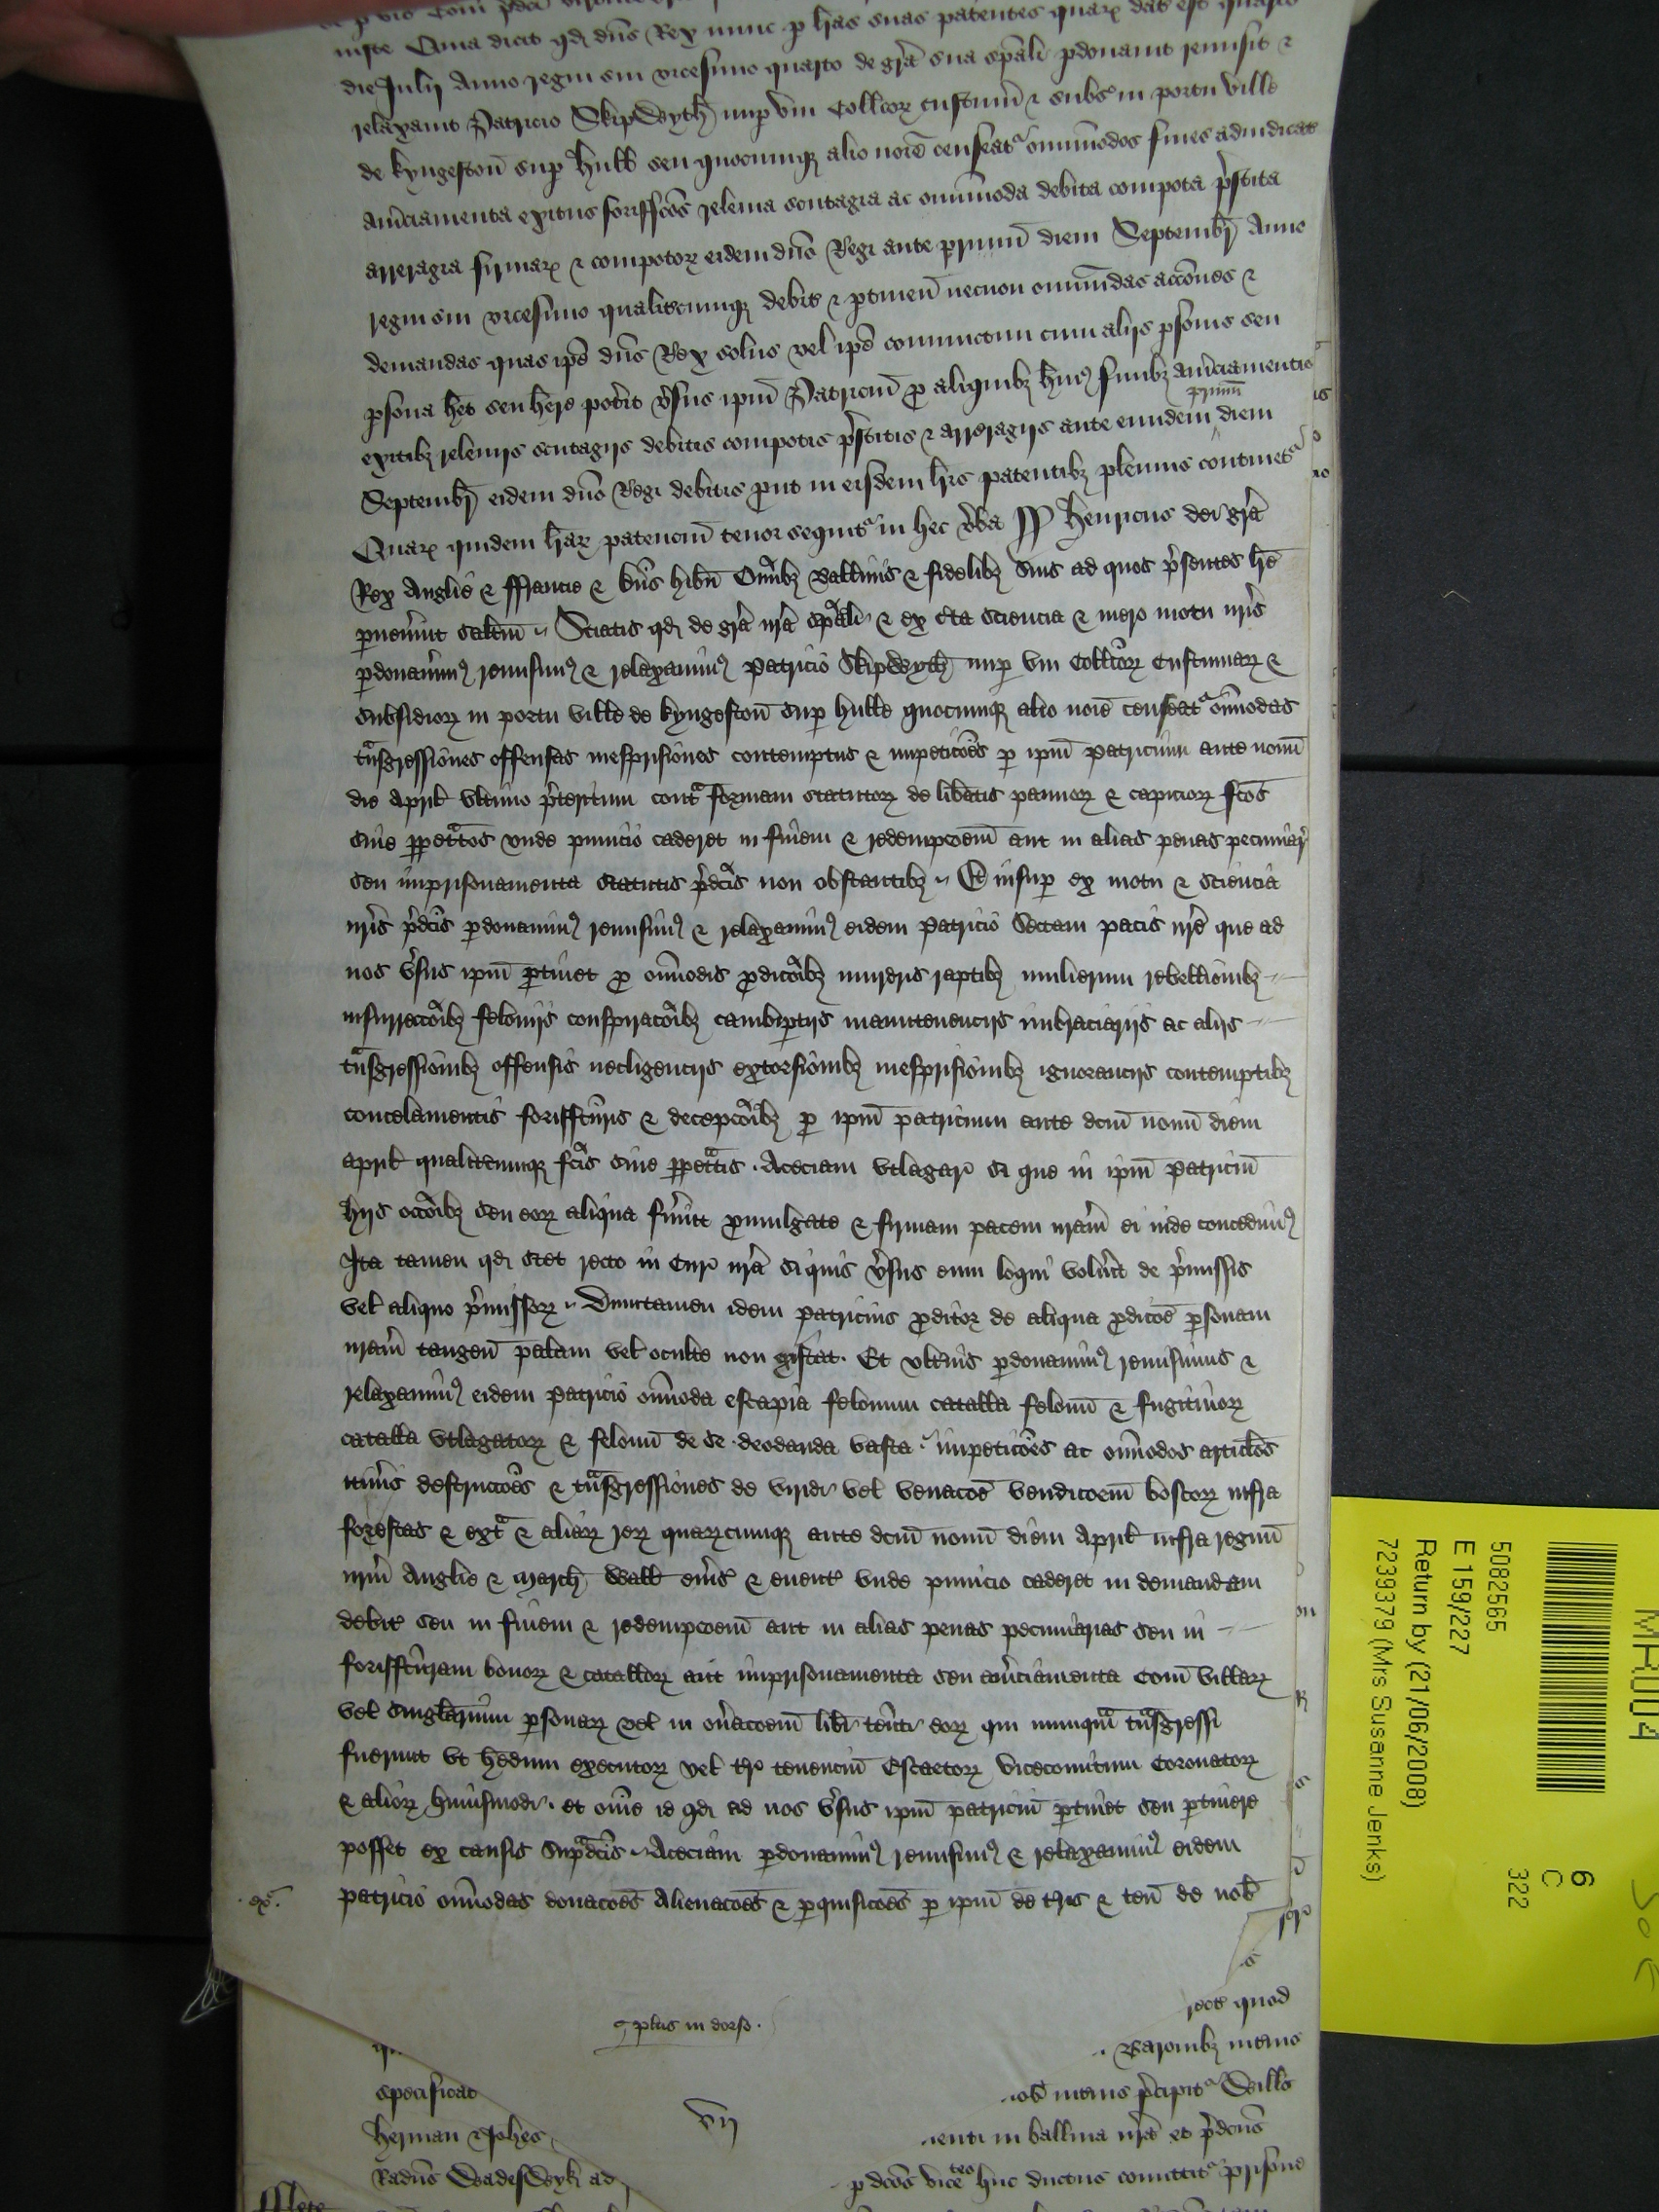 iuste Quia dicit qd dns Rex nunc p lras suas patentes quar dat est quarto
die Julij Anno regni sui vicesimo quarto de gra sua spali pdonauit remisit &
relaxauit Patricio Skipwyth nup vni Collcor custum & subs in portu ville
de kyngeston sup Hull seu quocumq alio noie censeat omimodos fines adiudicat
amciamenta exitus forisfcos releuia scutagia ac omimoda debita compota prestita
arreragia firmar & compotor eidem dno Regi ante primum diem Septembr Anno
regni sui vicesimo qualitcumq debit & ptinen necnon omimodas accones &
demandas quas ipe dns Rex solus vel ipe coniunctim cum alijs psonis seu
psona het seu here potit vsus ipm Patriciu p aliquibz huius finibz amciamentis
exitibz releuijs scutagijs debitis compotis prestitis & arreragijs ante eundem primum diem
Septembr eidem dno Regi debitis put in eisdem lris patentibz plenius continet
Quar quidem lrar patenciu tenor sequit in hec vba Henricus dei gra
Rex Anglie & ffrancie & dns hibn Omibz Balliuis & fidelibz suis ad quos presentes lre
puenint saltm Sciatis qd de gra nra spali & ex cta sciencia & mero motu nris
pdonauim remisim & relaxauim Patricio Skipwyth nup vni Collcor Custumar &
subsidior in portu ville de kyngeston sup hulle quocumq alio noie censeat omimodas
tnsgressiones offensas mesprisiones contemptus & impeticoes p ipm Patricium ante nonu
die April vltimo preteritum contra formam statutor de libatis pannor & capicior fcos
siue ppetratos vnde punicio caderet in finem & redempcoem aut in alias penas pecuniar
seu imprisonamenta statutis predcis non obstantibz Et insup ex motu & sciencia
nris predcis pdonauim remisim & relaxauim eidem Patricio Sectam pacis nre que ad
nos vsus ipm ptinet p omimodis pdicoibz murdris raptibz mulierum rebellionibz
insurreccoibz felonijs conspiracoibz cambiptijs manutenencijs imbraciarijs ac alijs
tnsgressionibz offensis necligencijs extorsionibz mesprisionibz ignorancijs contemptibz
concelamentis forisfcuris & decepcoibz p ipm patricium ante dcm nonu diem
April qualitcumq fcis siue ppetratis Aceciam vtlagar si que in ipm Patriciu
hijs occoibz seu eor aliqua fuint pmulgate & firmam pacem nram ei inde concedim
Ita tamen qd stet recto in Cur nra si quis vsus eum loqui voluit de premissis
vel aliquo premissor Dumtamen idem Patricius pditor de aliqua pdicoe psonam
nram tangen palam vel oculte non existat Et vltius pdonauim remisimus &
relaxauim eidem Patricio omimoda escapia felonum catalla felonu & fugitiuor
catalla vtlagator & felonu de se deodanda vasta impeticoes ac omimodos articlos
itinis destruccoes & tnsgressiones de viridi vel venacoe vendicoem boscor infra
forestas & extra & aliar rer quarcumq ante dcm nonu diem April infra regnu
nrm Anglie & march Wall emis & euent vnde punicio caderet in demandam
debit seu in finem & redempcoem aut in alias penas pecuniarias seu in
forisfcuram bonor & catallor aut imprisonamenta seu amciamenta Com villar
vel singlarium psonar vel in onacoem libi tenti eor qui nunqm tnsgressi
fuerunt vt hedum executor vel tre tenenciu Escaetor vicecomitum Coronator
& alior huiusmodi et omne id qd ad nos vsus ipm patriciu ptinet seu ptinere
posset ex causis supradcis Aceciam pdonauim remisim & relaxauim eidem
patricio omimodas donacoes Alienacoes & pquisicoes p ipm de tris & ten de nob
ex
plus in dorso
quod
Baronibz intus
specificat
intus precipit Willo
herman & Johes
vij
in balliua nra et predcus
Radus Wadeswyk ad
p dcos vicetes huc ductus comittit prisone
5082565
E 159/227
Return by (21/06/2008)
7239379 (Mrs Susanne Jenks)
MR004
6
C
322